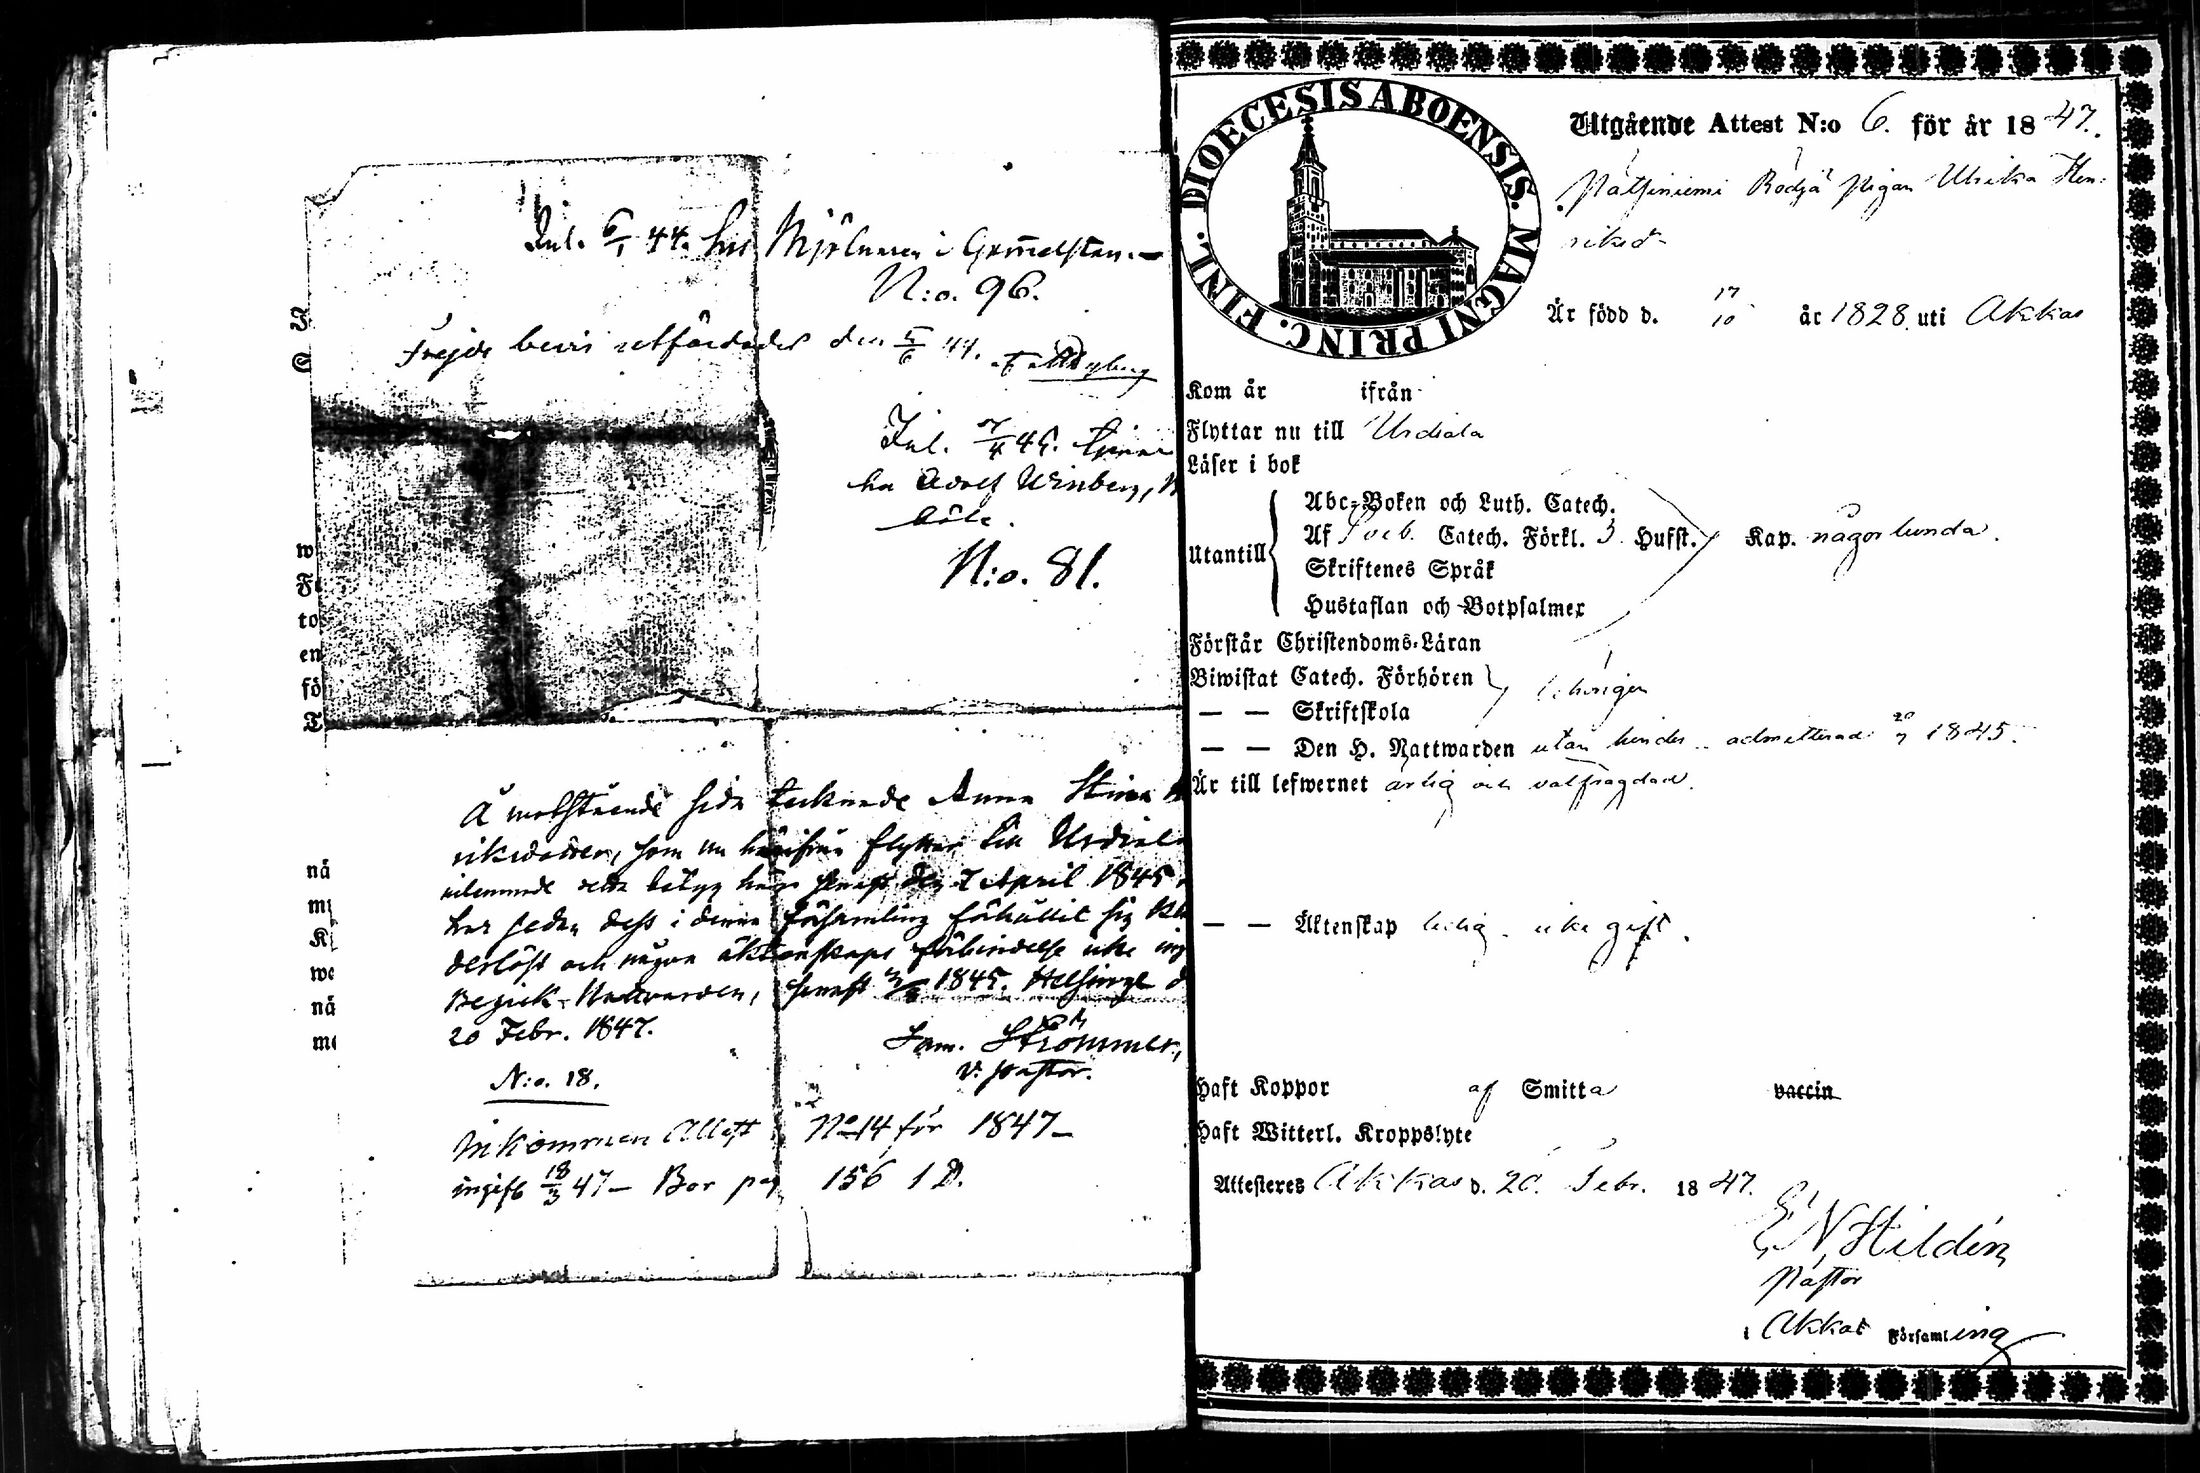 Inl. 6/1 44. hos Mjölnaren i Gammelstan.—
N:o. 96.
Frejde bevis utfärdadt den 5/6 44.
Inl. 7/4 45. tjenar
hos Adolf Winberg,
böle.
N:o. 81.
Å motstående sida tecknade Anna Stina
riksdotter, som nu härifrån flyttar till Urdiala
den 7 April 1845
har sedan dess i denna församling förhållit sig
derlöst och någon äktenskaps förbindelse icke ing
Begick Nattvarden, senast 1845. Helsinge d
20 Febr. 1847.
Sam. Strömmer,
V. pastor.
N:o. 18.
Inkommen Attest No 14 för 1847—
ingift 18/3 47— Bor pag 156 1 D.
DIOECESIS ABOENSIS. MAGNI PRINC. FINL.
Utgående Attest N:o 6. för år 1847.
Rödjä pigan Ulrika Hen-
riksd-
Är född d. 17/10 år 1828. uti Akkas
Kom år ifrån
Flyttar nu till Urdiala
Läser i bok
Utantill
Abc-Boken och Luth. Catech.
Af Sveb. Catech. Förkl. 3 Hufst. Kap. någorlunda.
Skriftenes Språk
Hustaflan och Botpsalmer
Förstår Christendoms-Läran
Biwistat Catech. Förhören behörigen
— — Skriftskola
— — Den H. Nattwarden utan hinder admitterad 20/7 1845.
Är till lefwernet ärlig och välfrägdad.
— — Äktenskap ledig. icke gift.
Haft Koppor af Smitta vaccin
Haft Witterl. Kroppslyte
Attesteres Akkas d. 20. Febr. 1847.
E N Hildén
Pastor
i Akkas Församling